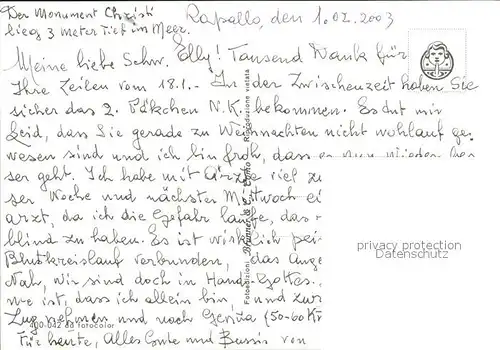 Der Monument Christi
liegt 3 meter tief im Meer.
Rapallo, den 1.02.2003
Meine liebe Schw. Elly! Tausend Dank für
Ihre Zeilen vom 18.1.- In der Zwischenzeit haben Sie
sicher das 2. Päkchen N.K. bekommen. Es tut mir
Leid, dass Sie gerade zu Weihnachten nicht wohlauf ge-
wesen sind und ich bin froh, dass es nun wieder bes
ser geht. Ich habe mit Ärzte viel zu
ser Woche und nächster Mittwoch
arzt, da ich die Gefahr laufe, das
blind zu haben. Es ist wirklich pei
Blutkreislauf verbunden, das Auge
Nah, wir sind doch in Hände Gottes.
me ist, dass ich allein bin, und zur
Zug nehmen und nach Genua (50-60 K
Für heute, Alles Gute und Bussis von
Fotoedizioni Brunner & C., Como Riproduzione vietata
400-042 da fotocolor
privacy protection
Datenschutz